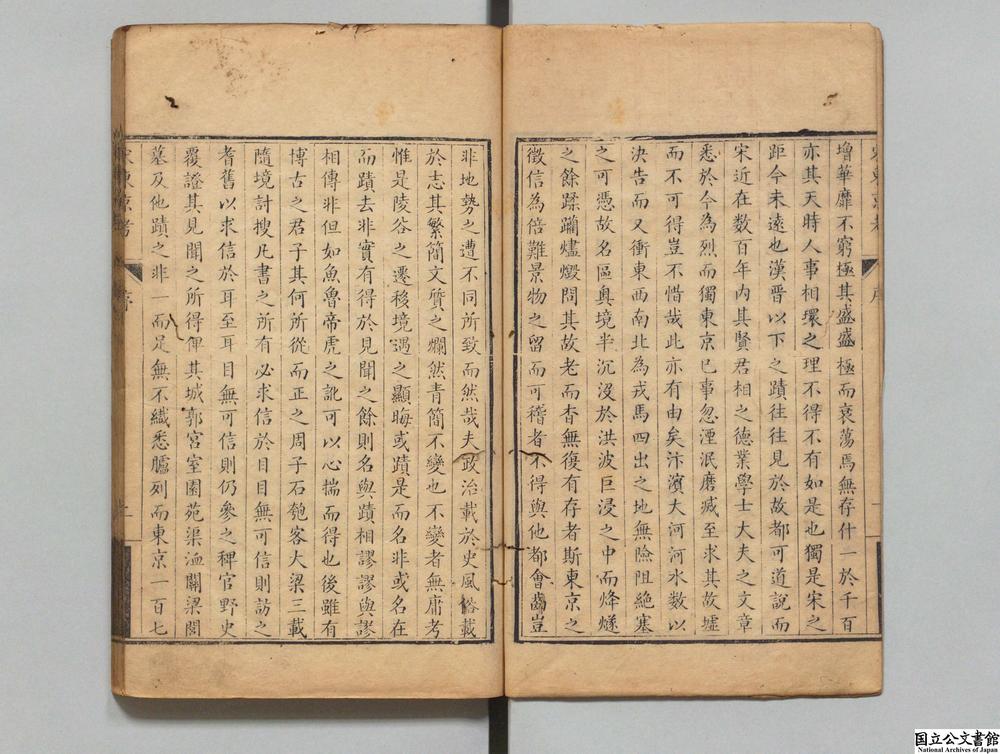 增華靡不窮極其盛盛極而衰蕩焉無存什一於千百
亦其天時人事相環之理不得不有如是也獨是宋之
距今未遠也漢晉以下之蹟往往見於故都可道說而
宋近在數百年内其賢君相之德業學士大夫之文章
悉於今為烈而獨東京已事忽湮泯磨滅至求其故墟
而不可得豈不惜哉此亦有由矣汴濱大河河水數以
決告而又衝東西南北為戎馬四出之地無險阻絶塞
之可憑故名區奥境半沉沒於洪波巨浸之中而烽燧
之餘蹂躪爐燬問其故老而杳無復有存者斯東京之
徵信為倍難景物之留而可稽者不得與他都會齒豈
非地勢之遭不同所致而然哉夫政治載於史風俗載
於志其繁簡文質之爛然青簡不變也不變者無庸考
惟是陵谷之遷移境遇之顯晦或蹟是而名非或名在
而蹟去非實有得於見聞之餘則名與蹟相謬謬與謬
相傳非但如魚魯帝虎之訛可以心揣而得也後雖有
博古之君子其何所從而正之周子石匏客大梁三載
隨境討搜凡書之所有必求信於目目無可信則訪之
耆舊以求信於耳至耳目無可信則仍參之稗官野史
覆證其見聞之所得俾其城郭宮室園苑渠洫關梁閣
墓及他蹟之非一而足無不纖悉臚列而東京一百七
宋東京考
序
国立公文書館
National Archives of Japan